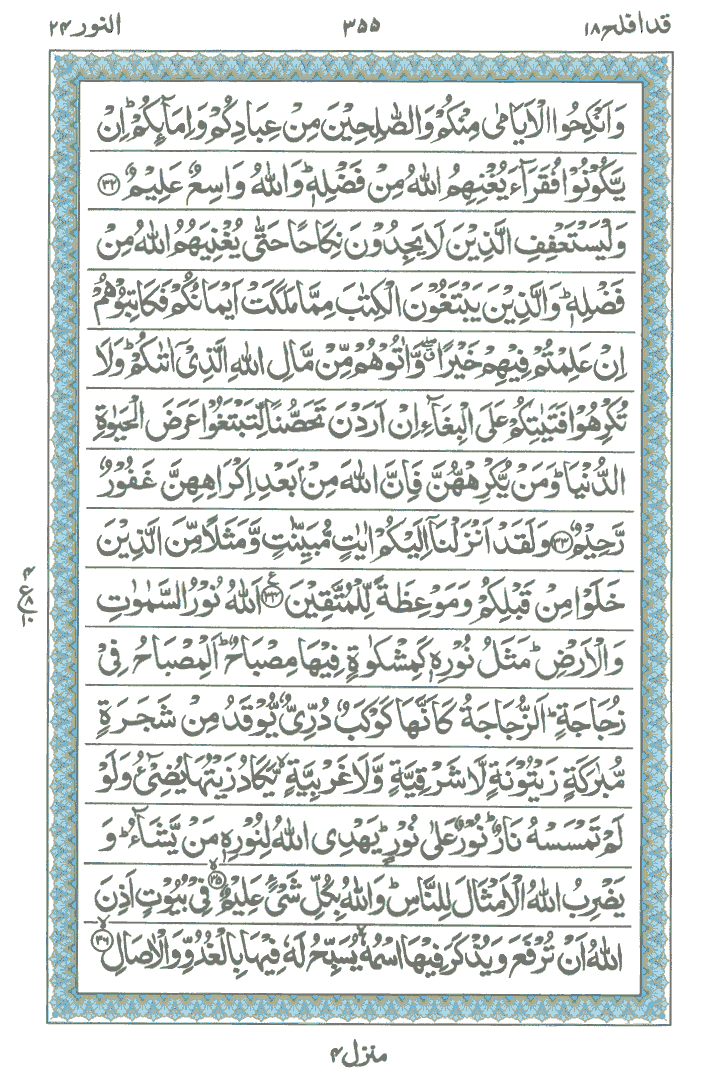 قد افلح ۱۸
۳۵۵
النور ۲۴
وَاَنْكِحُوا الْاَيَامٰى مِنْكُمْ وَالصّٰلِحِيْنَ مِنْ عِبَادِكُمْ وَاِمَآئِكُمْ ؕ اِنْ
يَّكُوْنُوْا فُقَرَآءَ يُغْنِهِمُ اللّٰهُ مِنْ فَضْلِهٖ ؕ وَاللّٰهُ وَاسِعٌ عَلِيْمٌ ﴿۳۲﴾
وَلْيَسْتَعْفِفِ الَّذِيْنَ لَا يَجِدُوْنَ نِكَاحًا حَتّٰى يُغْنِيَهُمُ اللّٰهُ مِنْ
فَضْلِهٖ ؕ وَالَّذِيْنَ يَبْتَغُوْنَ الْكِتٰبَ مِمَّا مَلَكَتْ اَيْمَانُكُمْ فَكَاتِبُوْهُمْ
اِنْ عَلِمْتُمْ فِيْهِمْ خَيْرًا ۖ وَّاٰتُوْهُمْ مِّنْ مَّالِ اللّٰهِ الَّذِيْٓ اٰتٰىكُمْ ؕ وَلَا
تُكْرِهُوْا فَتَيٰتِكُمْ عَلَى الْبِغَآءِ اِنْ اَرَدْنَ تَحَصُّنًا لِّتَبْتَغُوْا عَرَضَ الْحَيٰوةِ
الدُّنْيَا ؕ وَمَنْ يُّكْرِهْهُّنَّ فَاِنَّ اللّٰهَ مِنْۢ بَعْدِ اِكْرَاهِهِنَّ غَفُوْرٌ
رَّحِيْمٌ ﴿۳۳﴾ وَلَقَدْ اَنْزَلْنَآ اِلَيْكُمْ اٰيٰتٍ مُّبَيِّنٰتٍ وَّمَثَلًا مِّنَ الَّذِيْنَ
خَلَوْا مِنْ قَبْلِكُمْ وَمَوْعِظَةً لِّلْمُتَّقِيْنَ ﴿۳۴﴾ ع اَللّٰهُ نُوْرُ السَّمٰوٰتِ
۴
ع
۸
۱۰
وَالْاَرْضِ ؕ مَثَلُ نُوْرِهٖ كَمِشْكٰوةٍ فِيْهَا مِصْبَاحٌ ؕ اَلْمِصْبَاحُ فِيْ
زُجَاجَةٍ ؕ اَلزُّجَاجَةُ كَاَنَّهَا كَوْكَبٌ دُرِّيٌّ يُّوْقَدُ مِنْ شَجَرَةٍ
مُّبٰرَكَةٍ زَيْتُوْنَةٍ لَّا شَرْقِيَّةٍ وَّلَا غَرْبِيَّةٍ ۙ يَّكَادُ زَيْتُهَا يُضِيْٓءُ وَلَوْ
لَمْ تَمْسَسْهُ نَارٌ ؕ نُوْرٌ عَلٰى نُوْرٍ ؕ يَهْدِى اللّٰهُ لِنُوْرِهٖ مَنْ يَّشَآءُ ؕ وَ
يَضْرِبُ اللّٰهُ الْاَمْثَالَ لِلنَّاسِ ؕ وَاللّٰهُ بِكُلِّ شَيْءٍ عَلِيْمٌ ﴿۳۵﴾ ۙ فِيْ بُيُوْتٍ اَذِنَ
اللّٰهُ اَنْ تُرْفَعَ وَيُذْكَرَ فِيْهَا اسْمُهٗ ۙ يُسَبِّحُ لَهٗ فِيْهَا بِالْغُدُوِّ وَالْاٰصَالِ ﴿۳۶﴾ ۙ
منزل ۴